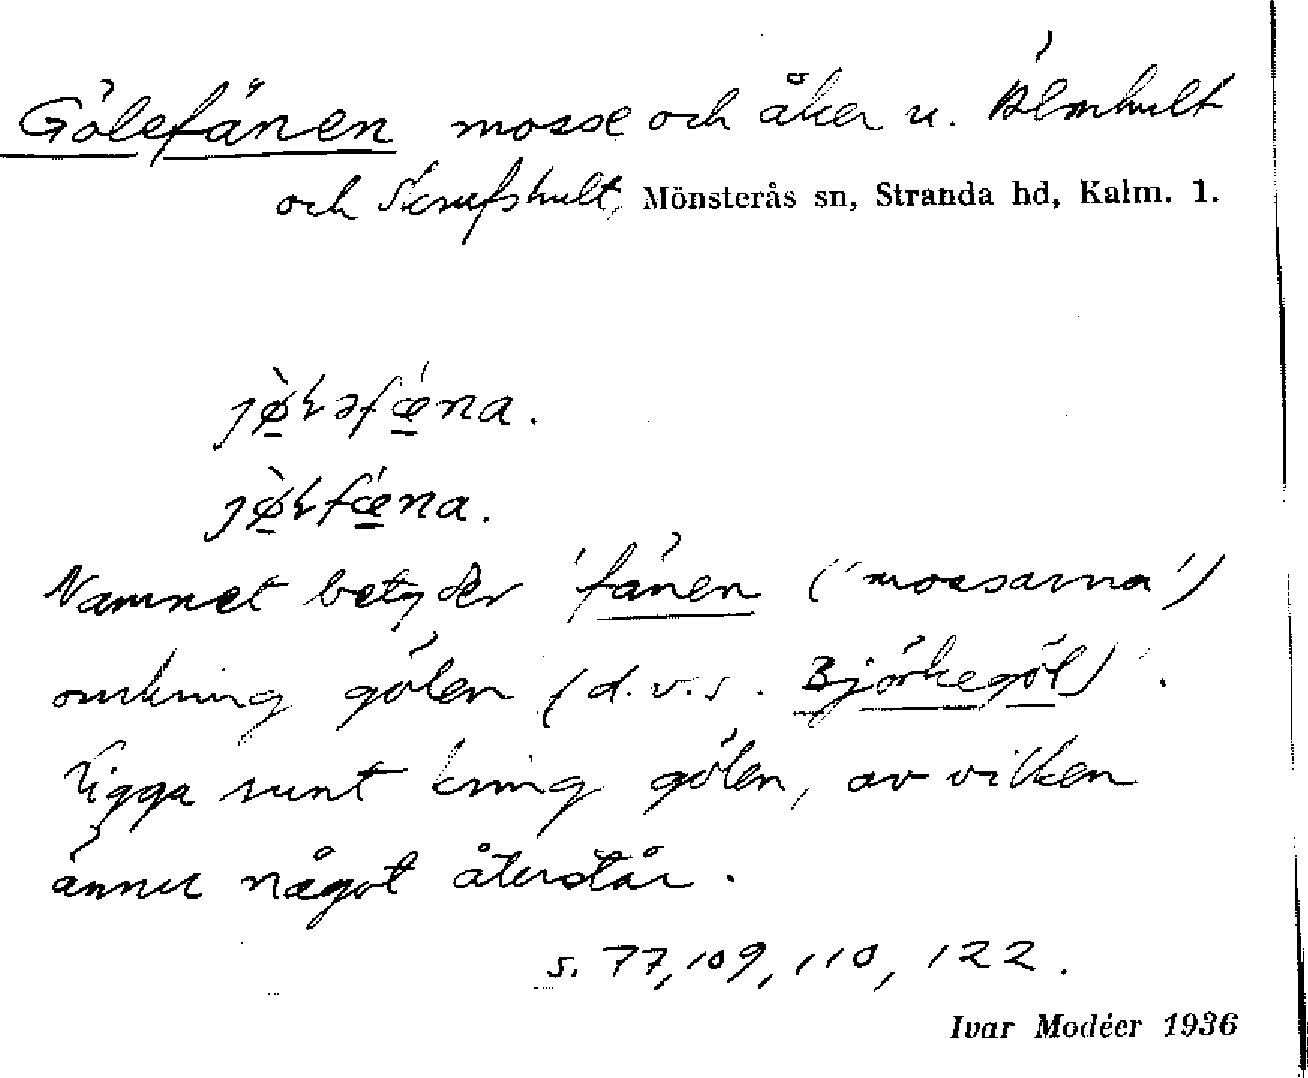 Gölefänen mosse och åker u. Älmhult
och Skrufshult, Mönsterås sn, Stranda hd, Kalm. l.
jø̀ɫəfǽna.
jø̀ɫfǽna.
Namnet betyder 'fänen ('mossarna')
omkring gölen (d.v.s. Björkegöl)'.
Ligga runt kring gölen, av vilken
ännu något återstår.
s. 77, 109, 110, 122.
Ivar Modéer 1936